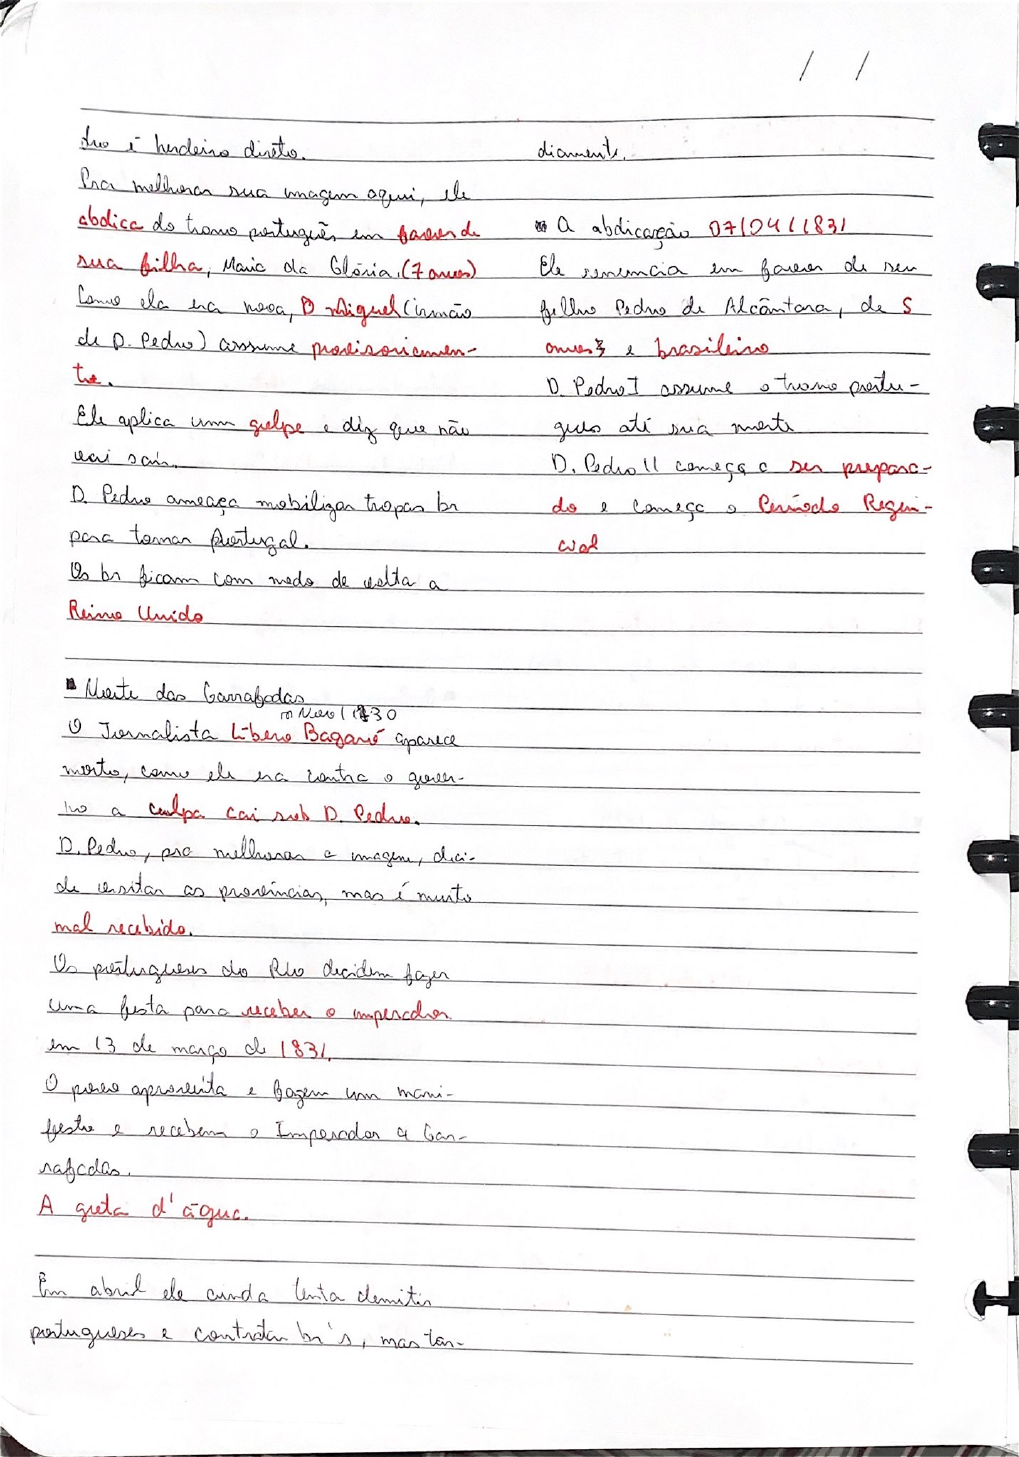 / /
dro é herdeiro direto.
Pra melhorar sua imagem aqui, ele
abdica do trono português em favor de
sua filha, Maria da Glória. (7 anos)
Como ela era nova, D Miguel (irmão
de D. Pedro) assume provisoriamen-
te.
Ele aplica um golpe e diz que não
vai sair.
D. Pedro ameaça mobilizar tropas br
para tomar Portugal.
Os br ficam com medo de volta a
Reino Unido
Noite das Garrafadas
Nov 1830
O Jornalista Líbero Badaró aparece
morto, como ele era contra o gover-
no a culpa cai sob D. Pedro.
D. Pedro, pra melhorar a imagem, deci-
de visitar as províncias, mas é muito
mal recebido.
Os portugueses do Rio decidem fazer
uma festa para receber o imperador
em 13 de março de 1831.
O povo aproveita e fazem um mani-
festo e recebem o Imperador a Gar-
rafadas.
A gota d'água.
Em abril ele ainda tenta demitir
portugueses e contratar br's, mas tar-
diamente.
A abdicação 07/04/1831
Ele renuncia em favor de seu
filho Pedro de Alcântara, de 5
anos e brasileiro
D. Pedro I assume o trono portu-
guês até sua morte
D. Pedro II começa a ser prepara-
do e começa o Período Regen-
cial